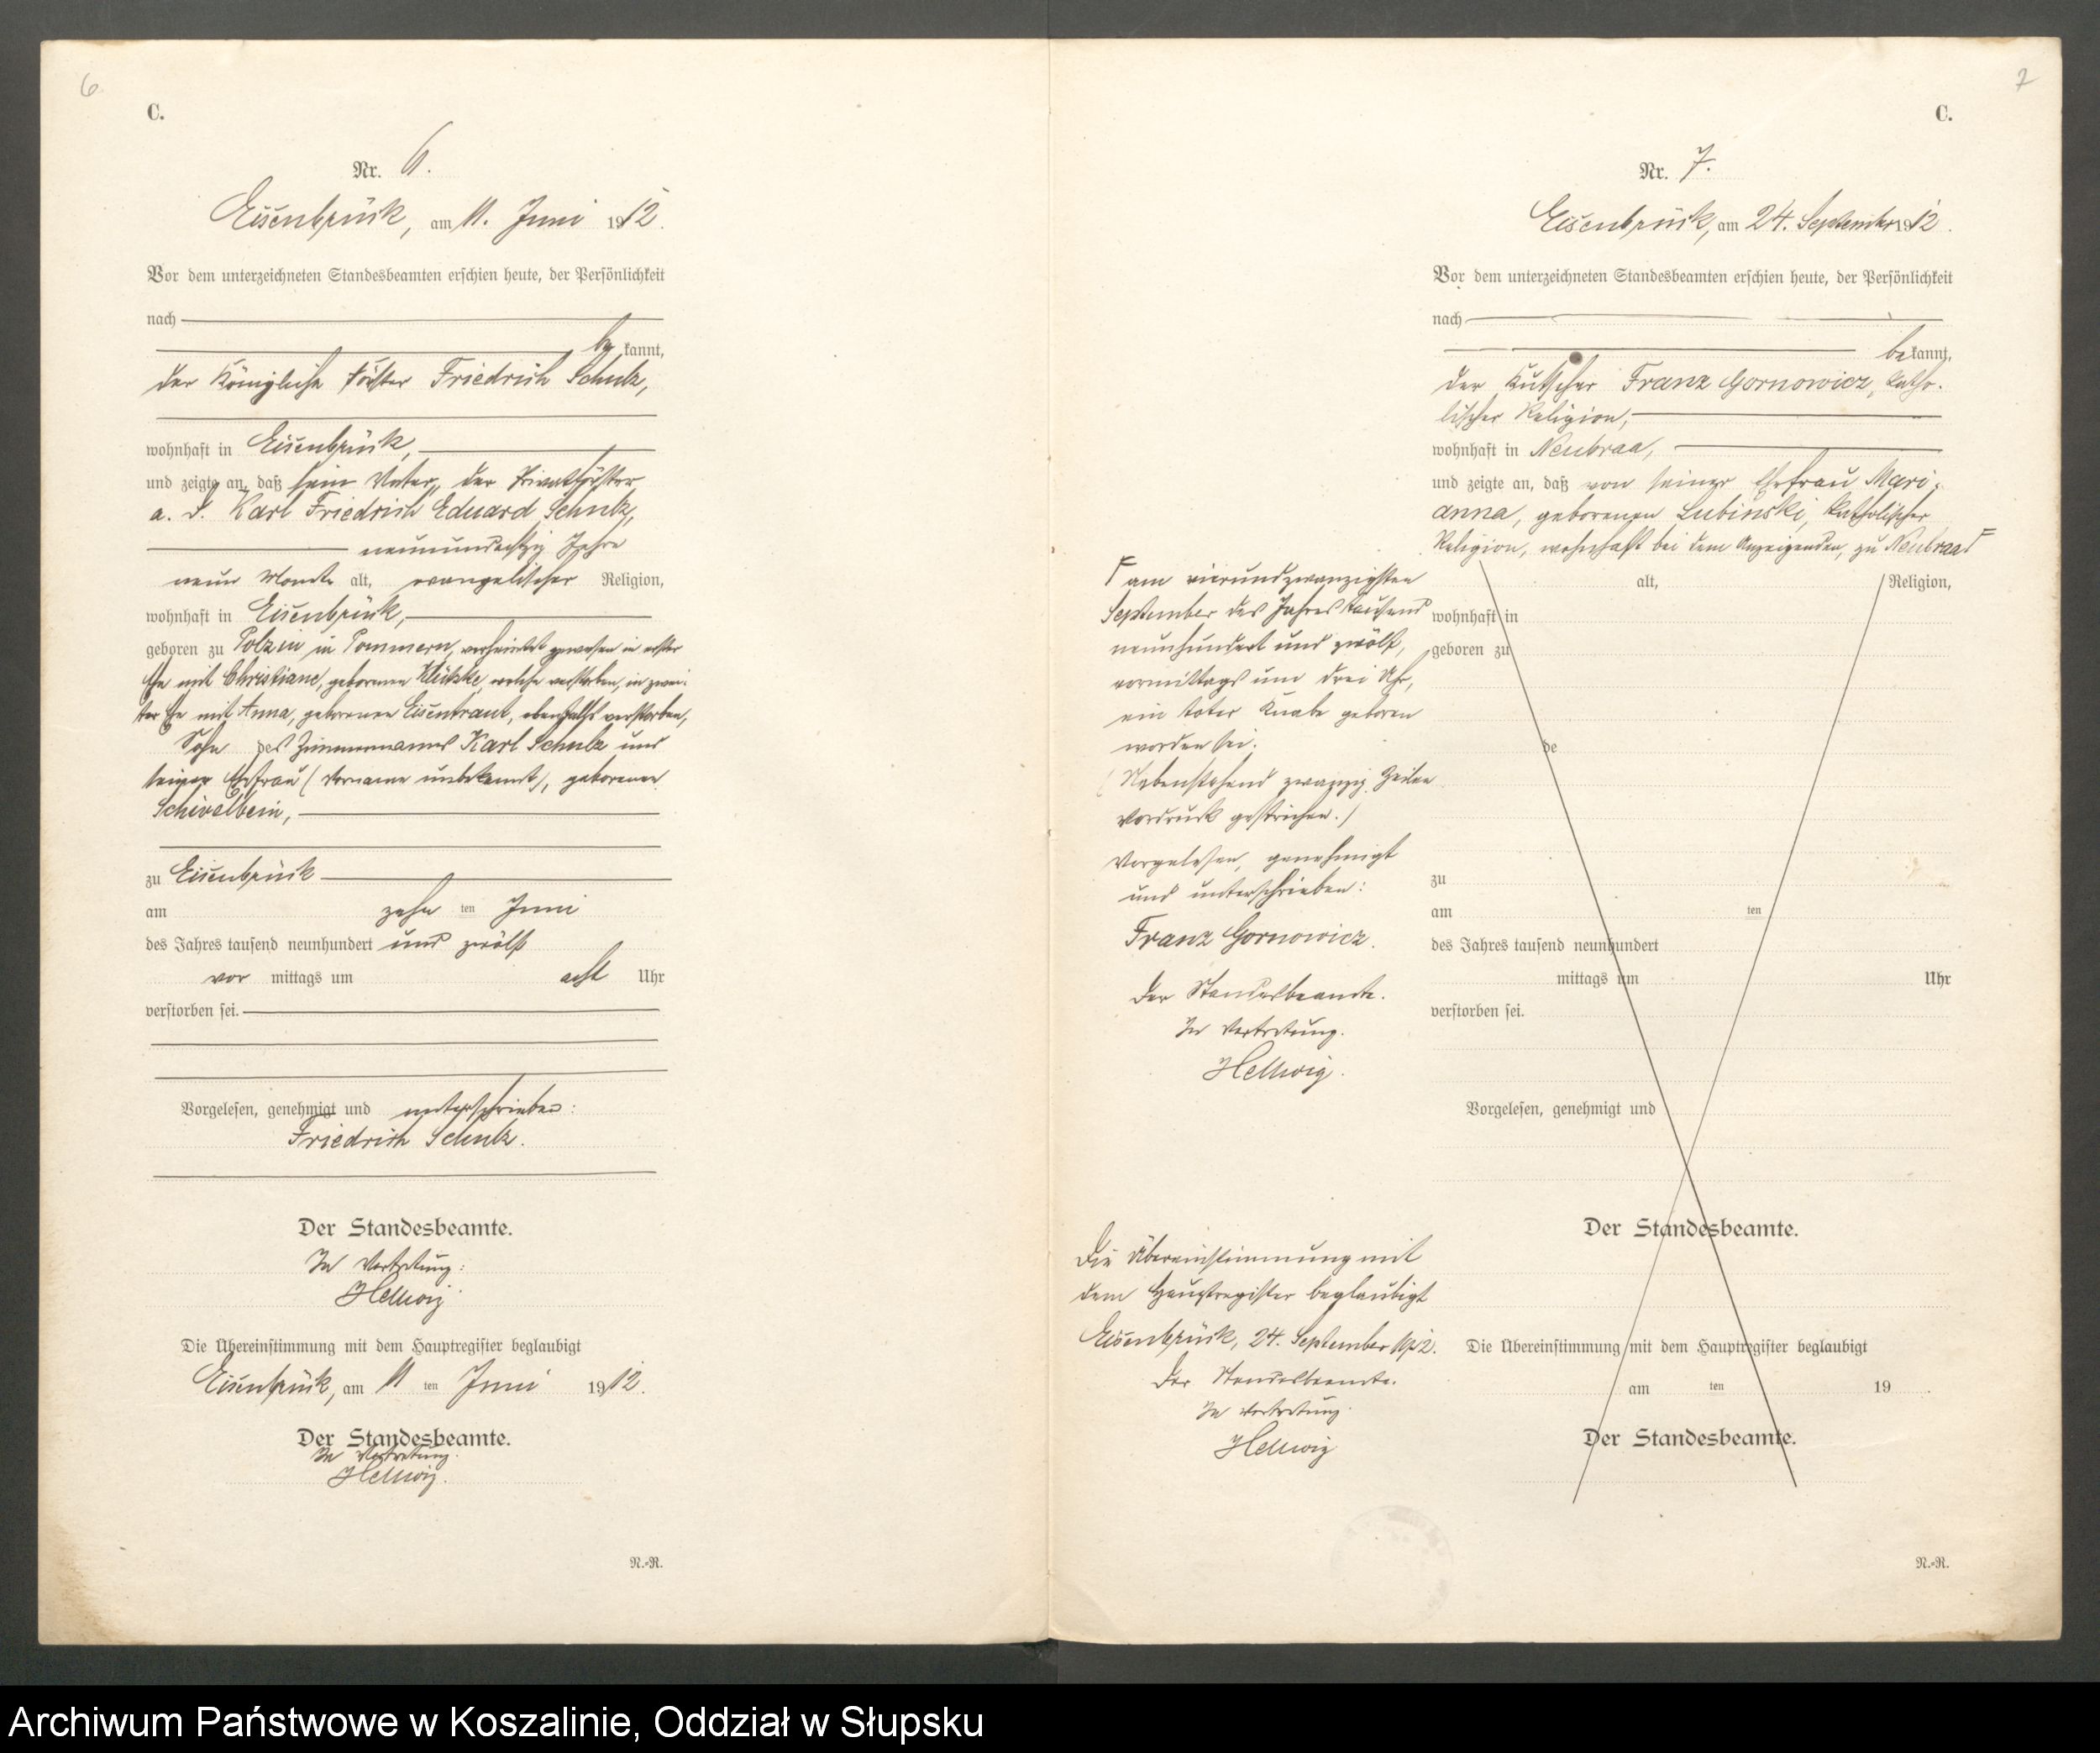 6
C.
Nr. 6.
Eisenbrück, am 11. Juni 1912.
Vor dem unterzeichneten Standesbeamten erschien heute, der Persönlichkeit
nach
be kannt,
der Königliche Förster Friedrich Schulz,
wohnhaft in Eisenbrück,
und zeigte an, daß sein Vater, der Privatförster
a. D. Karl Friedrich Eduard Schulz,
neunundachtzig Jahre
neun Monate alt, evangelischer Religion,
wohnhaft in Eisenbrück,
geboren zu Polzin in Pommern, verheiratet gewesen in erster
Ehe mit Christiane, geborenen Klützke, welche verstorben, in zwei-
ter Ehe mit Anna, geborenen Eisentraut, ebenfalls verstorben,
Sohn des Zimmermanns Karl Schulz und
seiner Ehefrau (Vorname unbekannt), geborenen
Schivelbein,
zu Eisenbrück
am zehn ten Juni
des Jahres tausend neunhundert und zwölf
vor mittags um acht Uhr
verstorben sei.
Vorgelesen, genehmigt und unterschrieben:
Friedrich Schulz.
Der Standesbeamte.
In Vertretung:
Hellwig
Die Übereinstimmung mit dem Hauptregister beglaubigt
Eisenbrück, am 11 ten Juni 1912.
Der Standesbeamte.
In Vertretung.
Hellwig.
N.-R.
7
C.
Nr. 7.
Eisenbrück, am 24. September 1912.
Vor dem unterzeichneten Standesbeamten erschien heute, der Persönlichkeit
nach
be kannt,
der Kutscher Franz Gornowicz, katho-
lischer Religion,
wohnhaft in Neubraa,
und zeigte an, daß von seiner Ehefrau Mari-
anna, geborenen Lubinski, katholischer
Religion, wohnhaft bei dem Anzeigenden, zu Neubraa
am vierundzwanzigsten
September des Jahres tausend
neunhundert und zwölf,
vormittags um drei Uhr,
ein toter Knabe geboren
worden sei.
(Nebenstehend zwanzig Zeilen
Vordruck gestrichen.)
Vorgelesen, genehmigt
und unterschrieben:
Franz Gornowicz.
Der Standesbeamte.
In Vertretung.
Hellwig.
Die Übereinstimmung mit
dem Hauptregister beglaubigt
Eisenbrück, 24. September 1912.
Der Standesbeamte.
In Vertretung.
Hellwig
alt, Religion,
wohnhaft in
geboren zu
de
zu
am ten
des Jahres tausend neunhundert
mittags um Uhr
verstorben sei.
Vorgelesen, genehmigt und
Der Standesbeamte.
Die Übereinstimmung mit dem Hauptregister beglaubigt
am ten 19 .
Der Standesbeamte.
N.-R.
Archiwum Państwowe w Koszalinie, Oddział w Słupsku